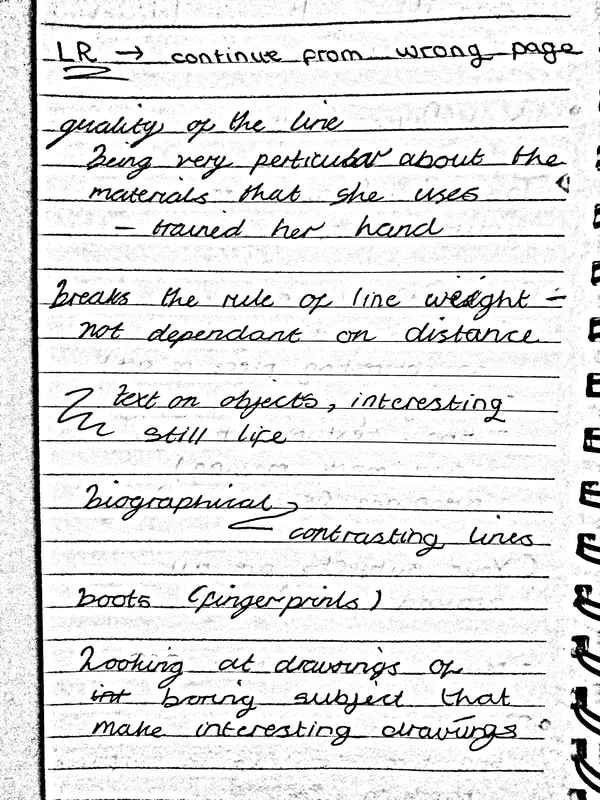 LR → continue from wrong page
quality of the line
being very perticular about the
materials that she uses
- trained her hand
breaks the rule of line weight -
not dependant on distance
text on objects, interesting
still life
biographical
contrasting lines
boots (fingerprints)
Looking at drawings of
int boring subject that
make interesting drawings